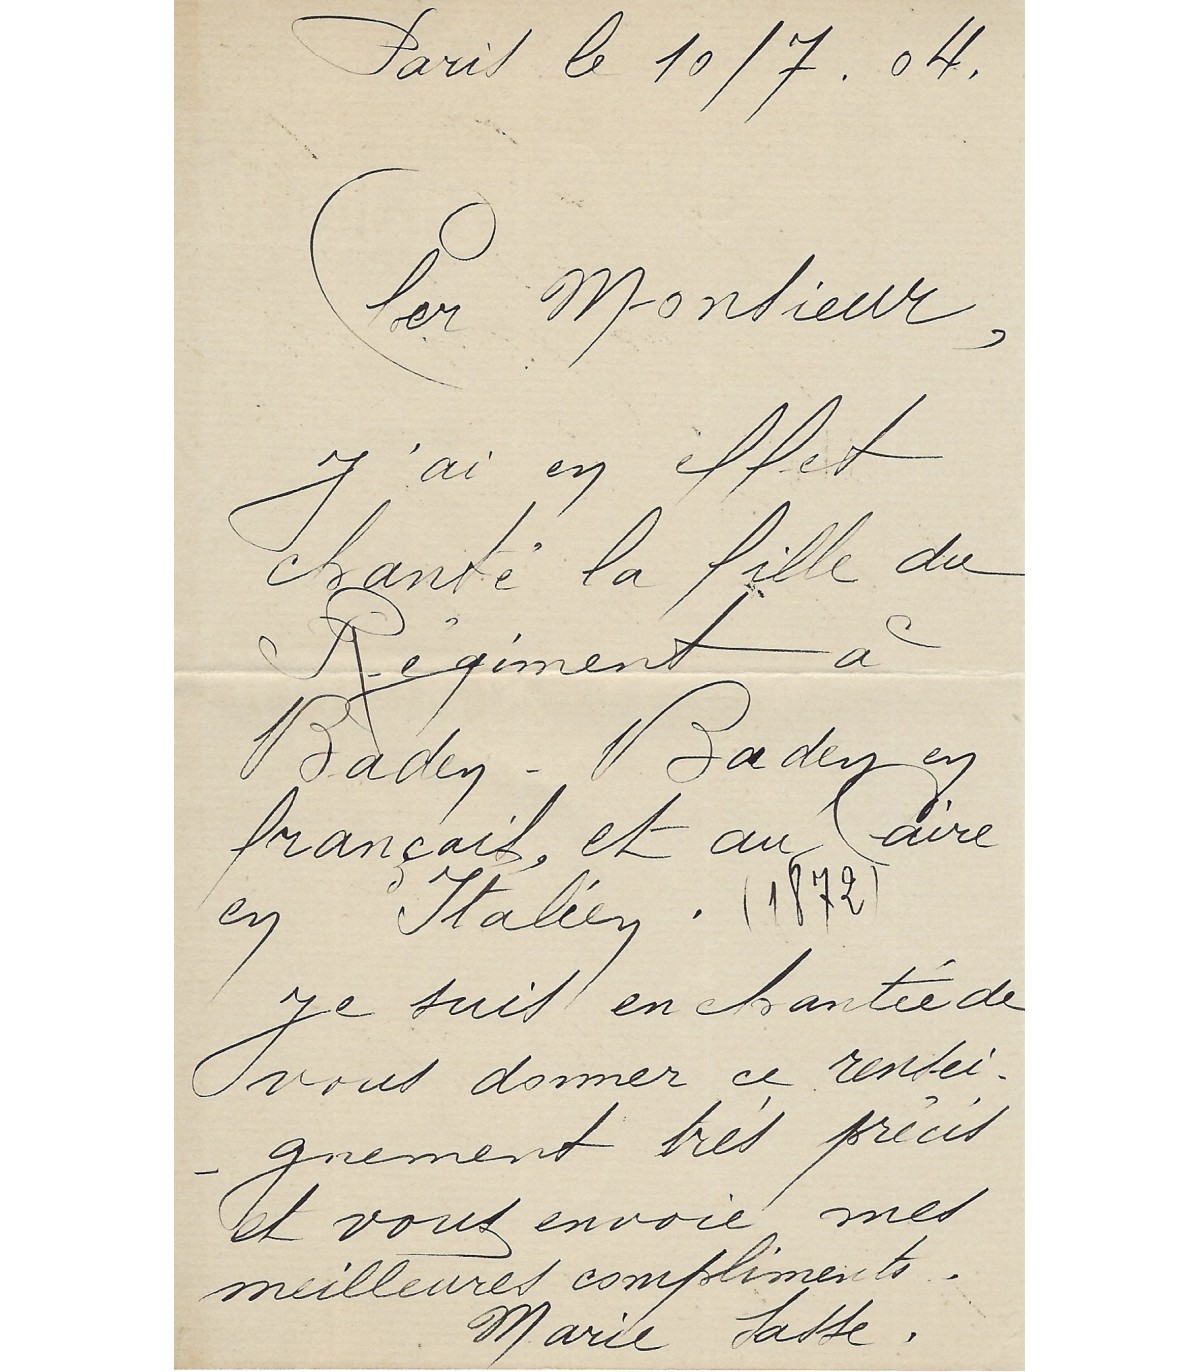 Paris le 10/7. 04.
Cher Monsieur,
J'ai en effet
chanté la fille du
Régiment à
Baden-Baden en
français, et au Caire
en Italien. (1872)
Je suis enchantée de
vous donner ce rensei-
-gnement très précis
et vous envoie mes
meilleures compliments.
Marie Sasse.